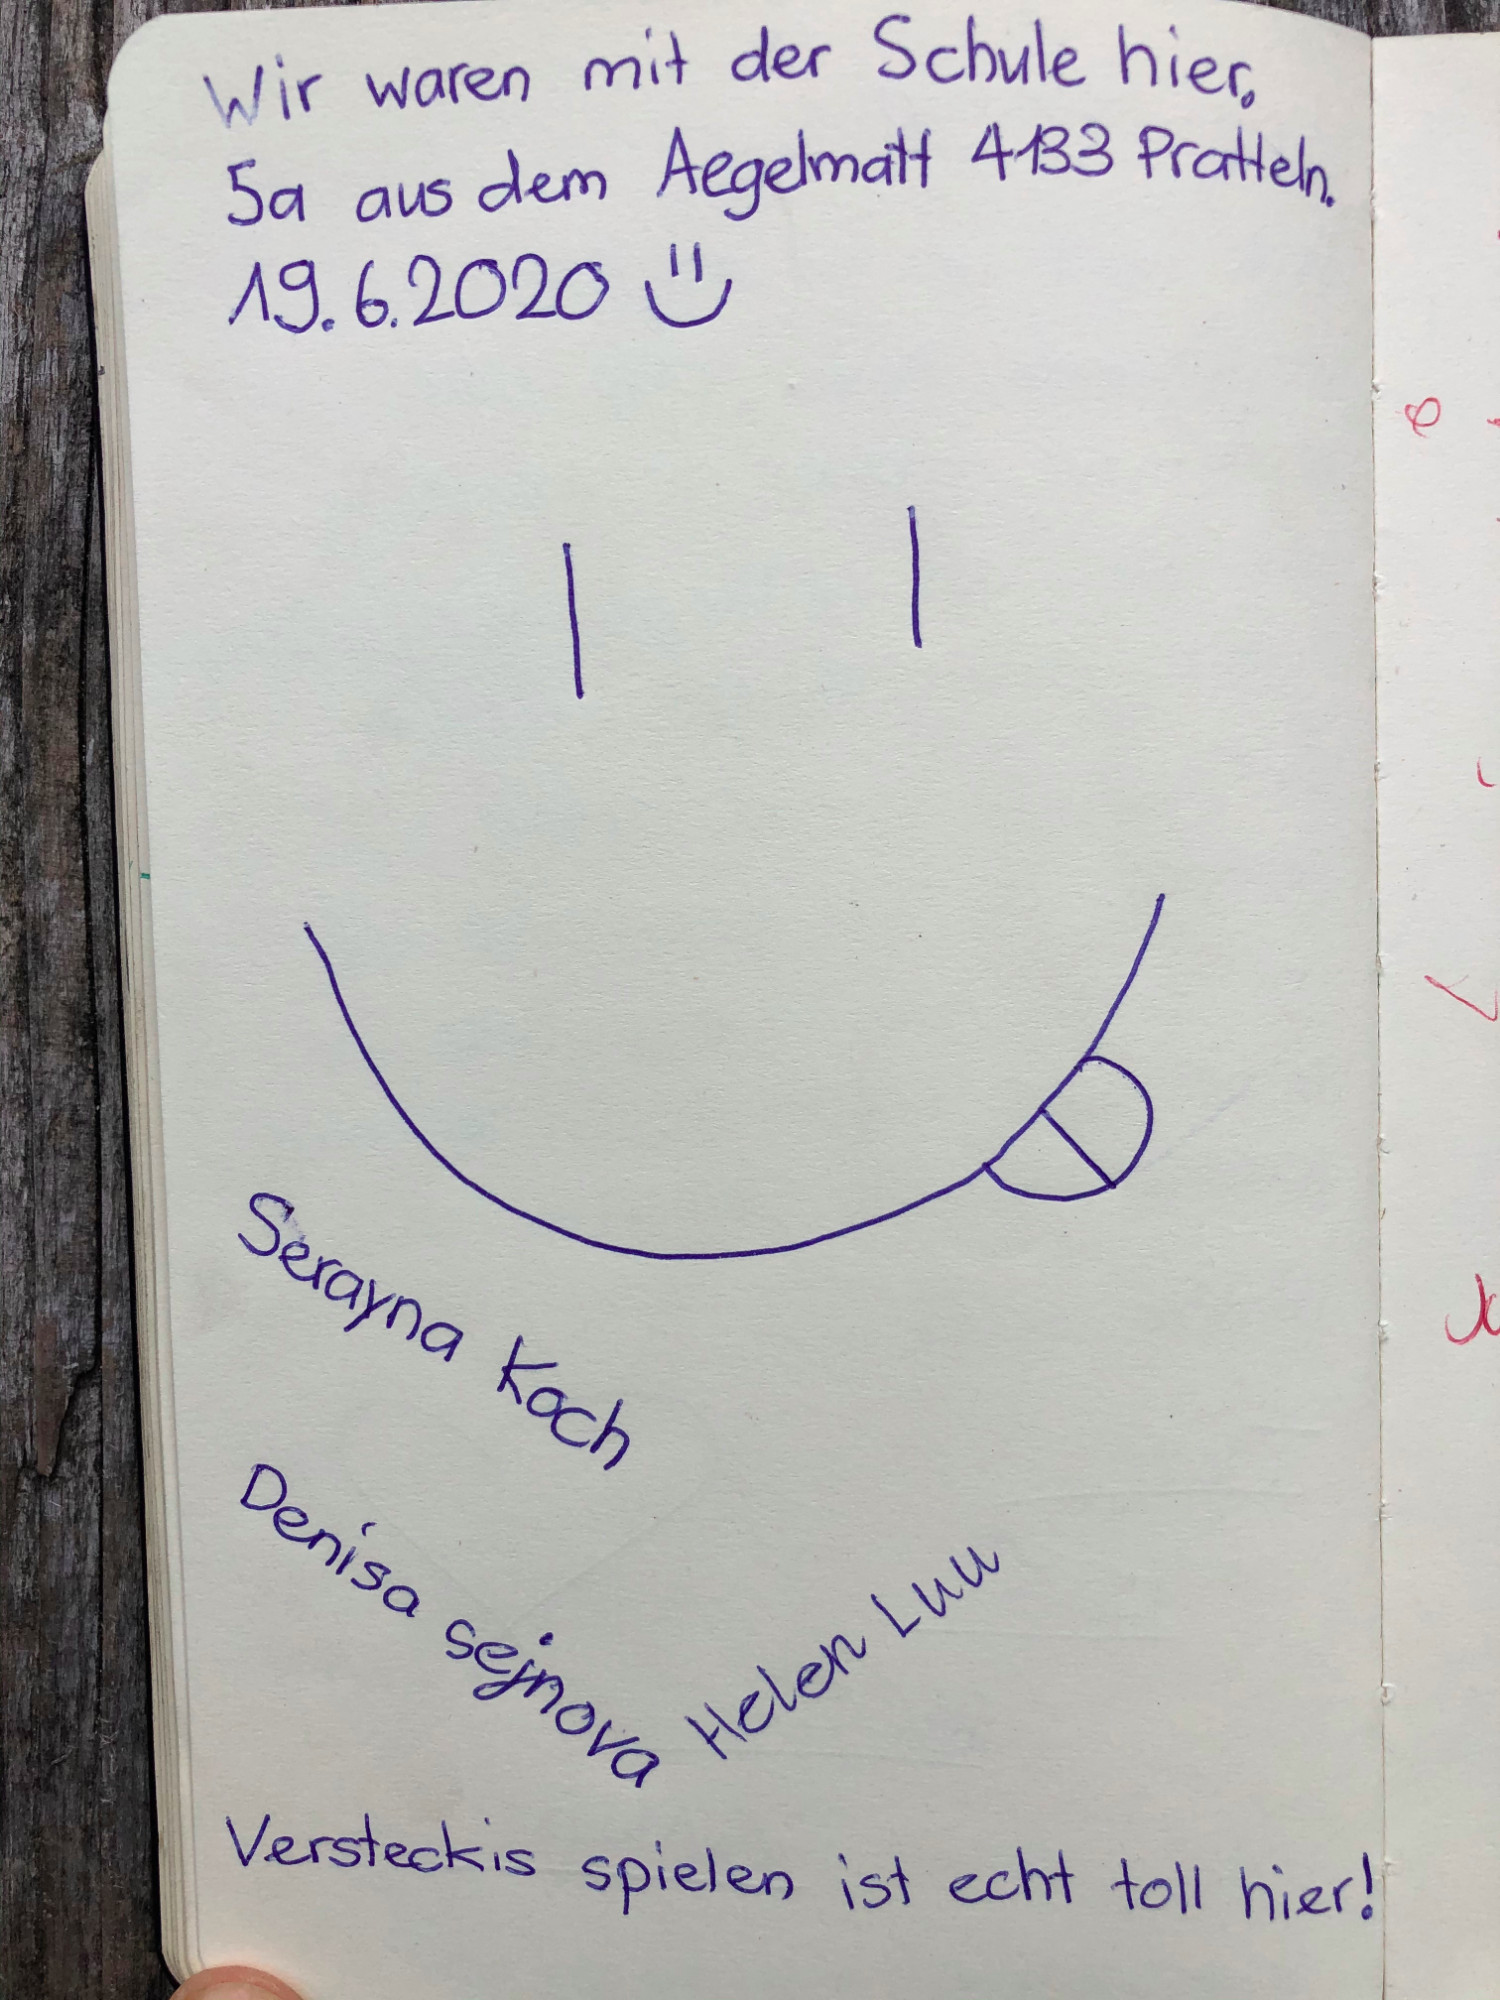 Wir waren mit der Schule hier.
5a aus dem Aegelmatt 4133 Pratteln.
19.6.2020
Serayna Koch
Denisa sejnova
Helen Luu
Versteckis spielen ist echt toll hier!